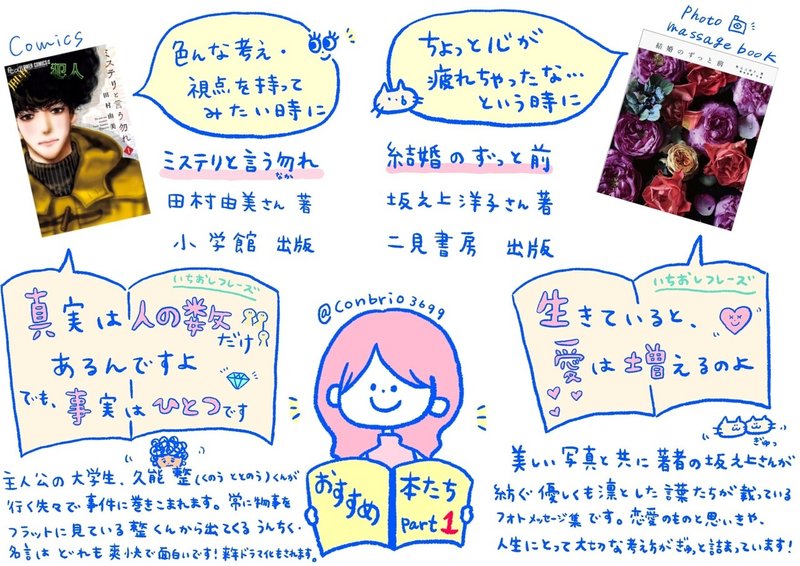 Comics
FLOWER COMICS
犯人
ミステリと言う勿れ
田村由美
1
色んな考え・
視点を持って
みたい時に
ミステリと言う勿れ
なか
田村由美さん 著
小学館 出版
いちおしフレーズ
真実は人の数だけ
あるんですよ
でも、事実はひとつです
主人公の大学生、久能 整(くのう ととのう)くんが
行く先々で事件に巻きこまれます。常に物事を
フラットに見ている整くんから出てくる うんちく・
名言は どれも 爽快で面白いです!来年ドラマ化もされます。
Photo
massage book
結婚のずっと前
ちょっと心が
疲れちゃったな…
という時に
結婚のずっと前
坂之上洋子さん 著
二見書房 出版
いちおしフレーズ
生きていると、
愛は増えるのよ
ぎゅっ
美しい写真と共に著者の坂之上さんが
紡ぐ優しくも凛とした言葉たちが載っている
フォトメッセージ集です。恋愛のものと思いきや、
人生にとって大切な考え方がぎゅっと詰まっています!
@conbrio3699
おすすめ
本たち
part 1